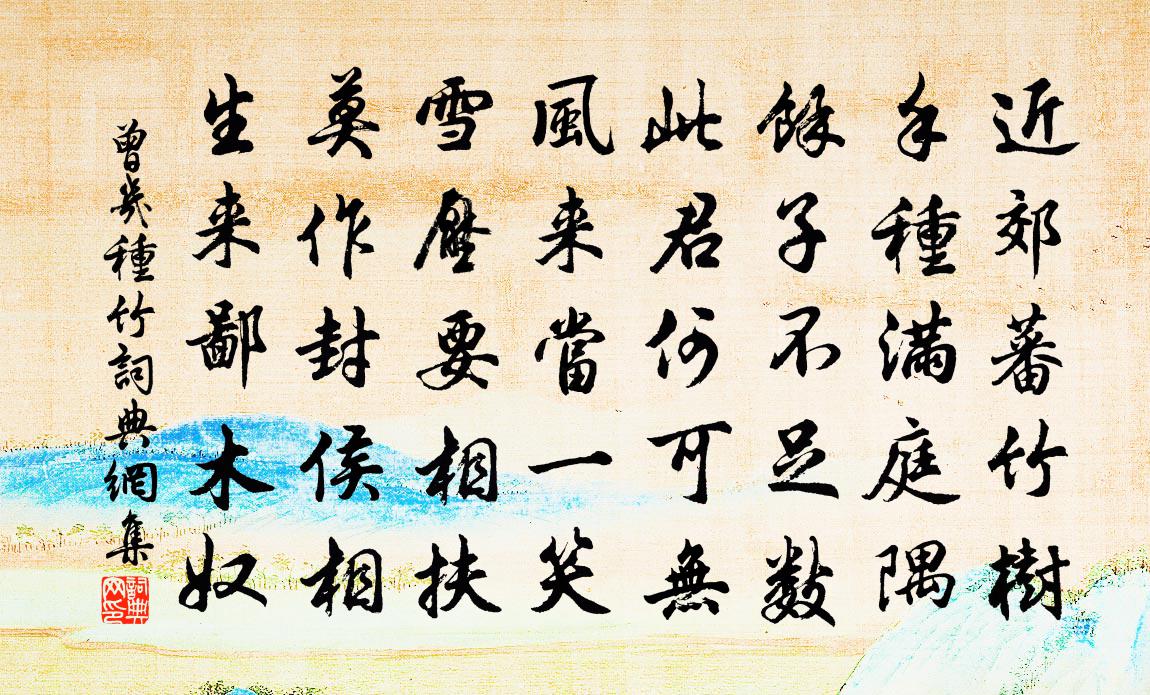 近郊蕃竹樹
手種滿庭隅
餘子不足數
此君何可無
風来當一笑
雪壓要相扶
莫作封侯相
生来鄙木奴
曾幾種竹詞典網集
詞典